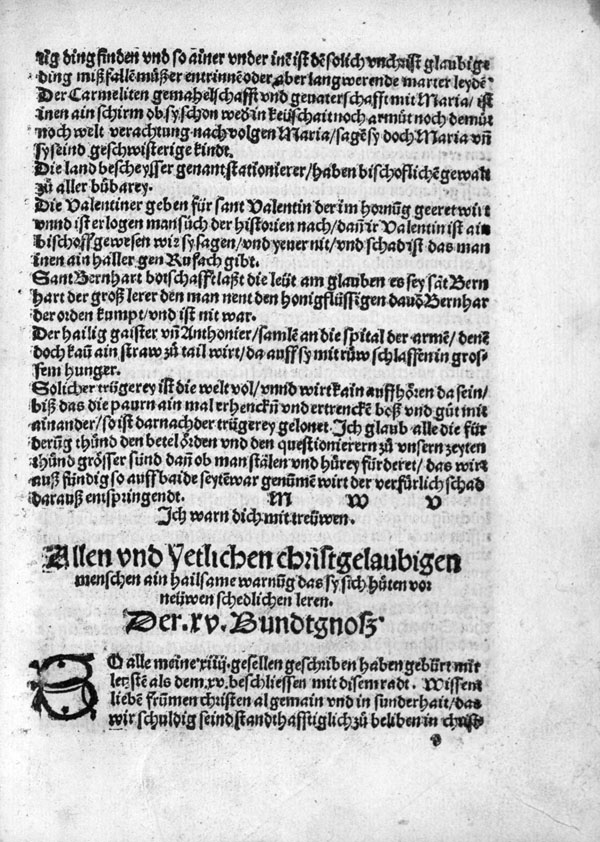 ng ding finden vnd so ainer vnder inẽ ist dẽ solich vnchrist glaubige
ding mißfallẽ müßer entrinnẽ oder aber langwerende marter leydẽ
Der Carmeliten gemahelschafft vnd geuaterschafft mit Maria / ist
inen ain schirm ob.sy.schon weď in keüschait noch armůt noch demůt
noch welt verachtung nach volgen Maria / sagẽ sy doch Maria vñ
sy seind geschwisterige kindt.
Die land bescheysser genant stationierer / haben bischoflichẽ gewalt
zů aller bůbarey.
Die Valentiner geben für sant Valentin der im hornũg geeret wirt
vnnd ist erlogen man sůch der historien nach / dañ ir Valentin ist ain
bischoff gewesen wir sy sagen / vnd yener nit / vnd schad ist das man
inen ain haller gen Rufach gibt.
Sant Bernhart botschafft laßt die leüt am glauben es sey sãt Bern
hart der groß lerer den man nent den honigflüssigen dauõ Bernhar
der orden kumpt / vnd ist nit war.
Der hailig gaister vñ Anthonier / samlẽ an die spital der armẽ / denẽ
doch kaũ ain straw zů tail wirt / da auff sy mit růw schlaffen in gros-
sem hunger.
Solicher trügerey ist die welt vol / vnnd wirt kain auffhören da sein /
biß das die paurn ain mal erhenckñ vnd ertrencke boß vnd gůt mit
ainander / so ist darnach der trügerey gelonet. Ich glaub alle die für
derũg thůnd den betel õrden vnd den questionierern zů vnsern zeyten
thůnd grösser sünd dañ ob man stälen vnd hůrey fürderet / das wirt
auß fündig so auff baide seytẽ war genũmẽ wirt der verfürlich schad
darauß entspringendt. M W V
Ich warn dich mit treüwen.
Allen vnd Yetlichen christgelaubigen
menschen ain hailsame warnũg das sy sich hüten vor
neüwen schedlichen leren.
Der .xv. Bundtgnosz
SO alle meine xiiij. gesellen geschriben haben gebürt mir
letzstẽ als dem .xv. beschliessen mit disem radt. Wissent
liebẽ frũmen christen al gemain vnd in sunderhait / das
wir schuldig seind standthafftiglich zů beliben in christ-